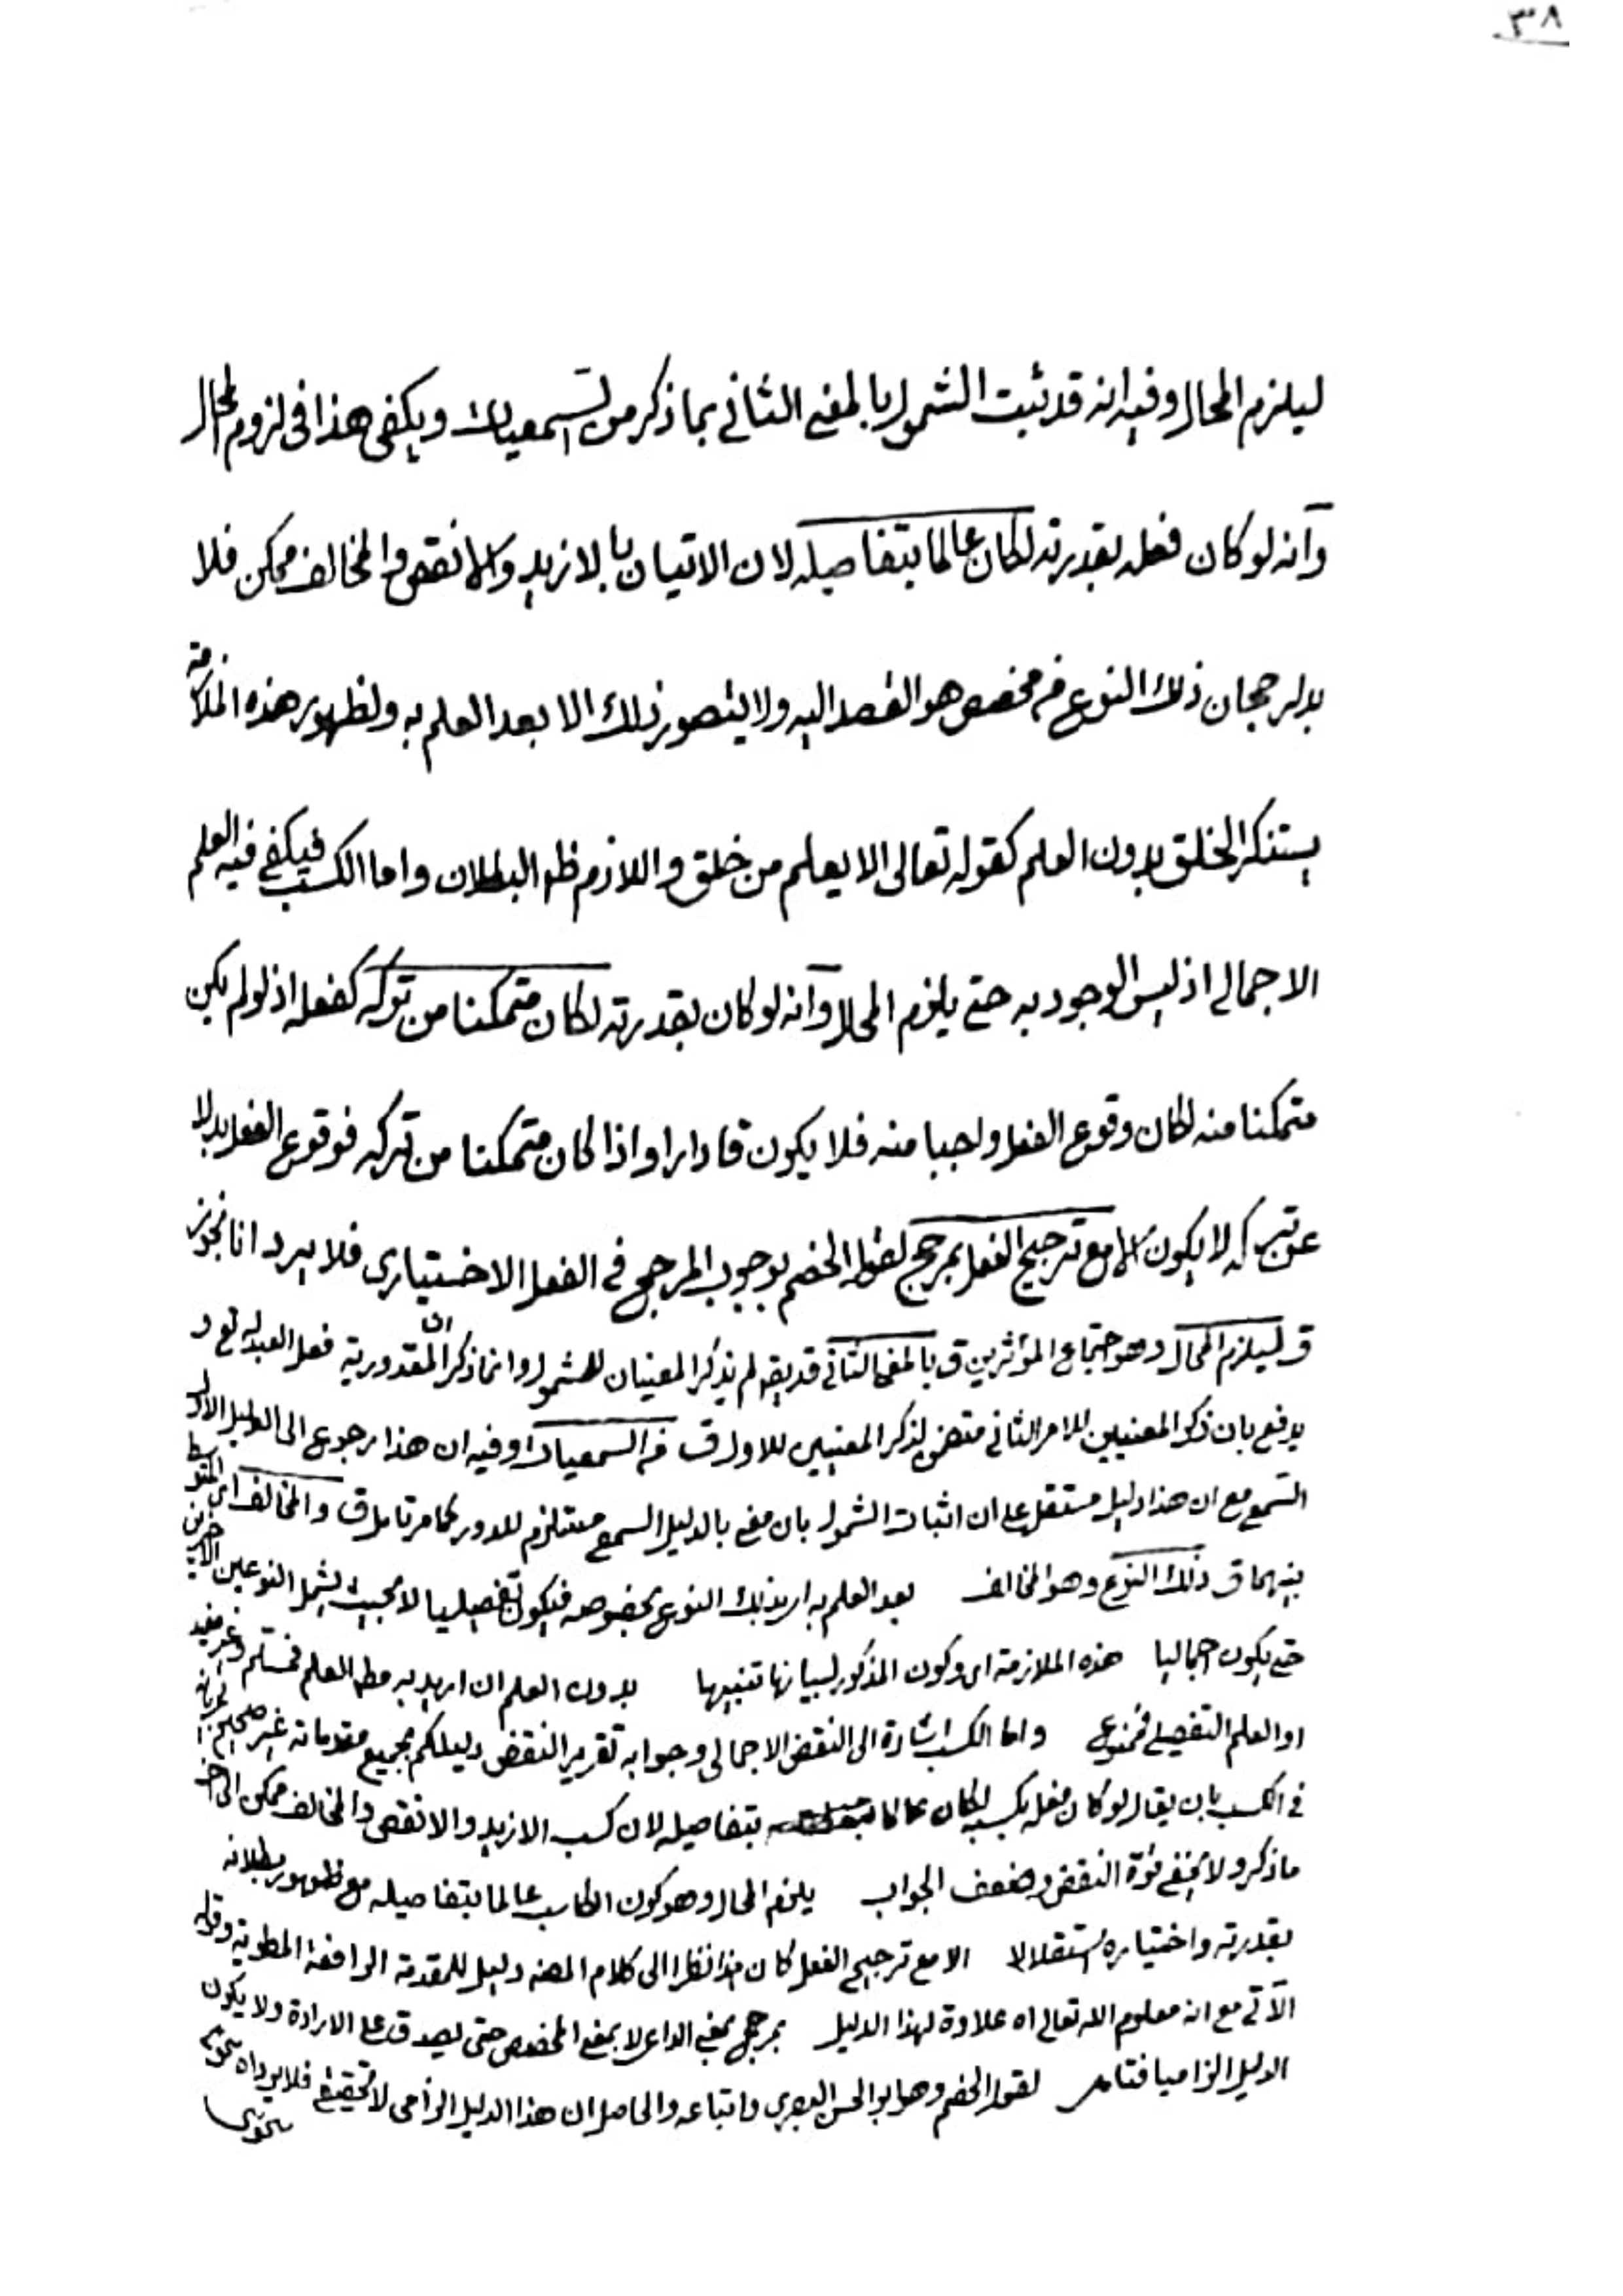 ٣٨
ليلزم المحال وفيه انه قد ثبت الشمول بالمعنى الثاني بما ذكر من السمعيات ويكفي هذا في لزوم المحال
وانه لو كان فعله بقدرته لكان عالما بتفاصيله لان الاتيان بالازيد والانقص والمخالف ممكن فلا
بد لرجحان ذلك النوع من مخصص هو القصد اليه ولا يتصور ذلك الا بعد العلم به ولظهور هذه الملازمة
يستنكر الخلق بدون العلم كقوله تعالى الا يعلم من خلق واللازم ظ البطلان واما الكسب فيكفي فيه العلم
الاجمالي اذ ليس الوجود به حتى يلزم المحال وانه لو كان بقدرته لكان متمكنا من تركه كفعله اذ لو لم يكن
متمكنا منه لكان وقوع الفعل واجبا منه فلا يكون قادرا واذا كان متمكنا من تركه فوقوع الفعل بدلا
عن تركه لا يكون الا مع ترجيح الفعل بمرجح لقول الخصم بوجوب المرجح في الفعل الاختياري فلا يرد انا نجوز
ق ليلزم المحال وهو اجتماع المؤثرين ق بالمعنى الثاني قد يق لم يذكر المعنيان للشمول وانما ذكر ان المقدورية فعل العبد له تع و
يدفع بان ذكر المعنيين للامر الثاني متضمن لذكر المعنيين للاول ق من السمعيات وفيه ان هذا رجوع الى الدليل الاول
السمع مع ان هذا دليل مستقل على ان اثبات الشمول بان معنى بالدليل السمع مستلزم للدور كما مر تامل ق والمخالف اي المتوسط
بينهما ق ذلك النوع وهو المخالف بعد العلم به اريد بذلك النوع بخصوصه فيكون تفصيليا لا بحيث يشمل النوعين الاخرين
حتى يكون اجماليا هذه الملازمة اي وكون المذكور لبيانها تنبيها بدون العلم ان اريد به مط العلم فمسلم وغير مفيد
او العلم التفصيلي فممنوع واما الكسب اشارة الى النقض الاجمالي وجوابه تقرير النقض دليلكم بجميع مقدماته غير صحيح لجريانه
في الكسب بان يقال لو كان فعله بكسبه لكان عالما بتفاصيله لان كسب الازيد والانقص والمخالف ممكن الى اخر
ما ذكر ولا يخفى قوة النقض وضعف الجواب يلزم المحال وهو كون الكاسب عالما بتفاصيله مع ظهور بطلانه
بقدرته واختياره استقلالا الا مع ترجيح الفعل كان هذا نظرا الى كلام المصنف دليل للمقدمة الرافعة المطوية وقوله
الآتي مع انه معلوم الله تعالى اه علاوة لهذا الدليل بمرجح بمعنى الداعي لا بمعنى المخصص حتى يصدق على الارادة ولا يكون
الدليل الزاميا فتامل لقول الخصم وهو ابو الحسن البصري واتباعه والحاصل ان هذا الدليل الزامي لا تحقيقي فلا يرد اه